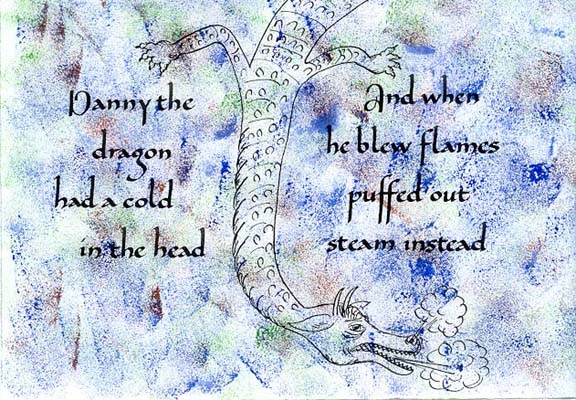 Danny the
dragon
had a cold
in the head
And when
he blew flames
puffed out
steam instead